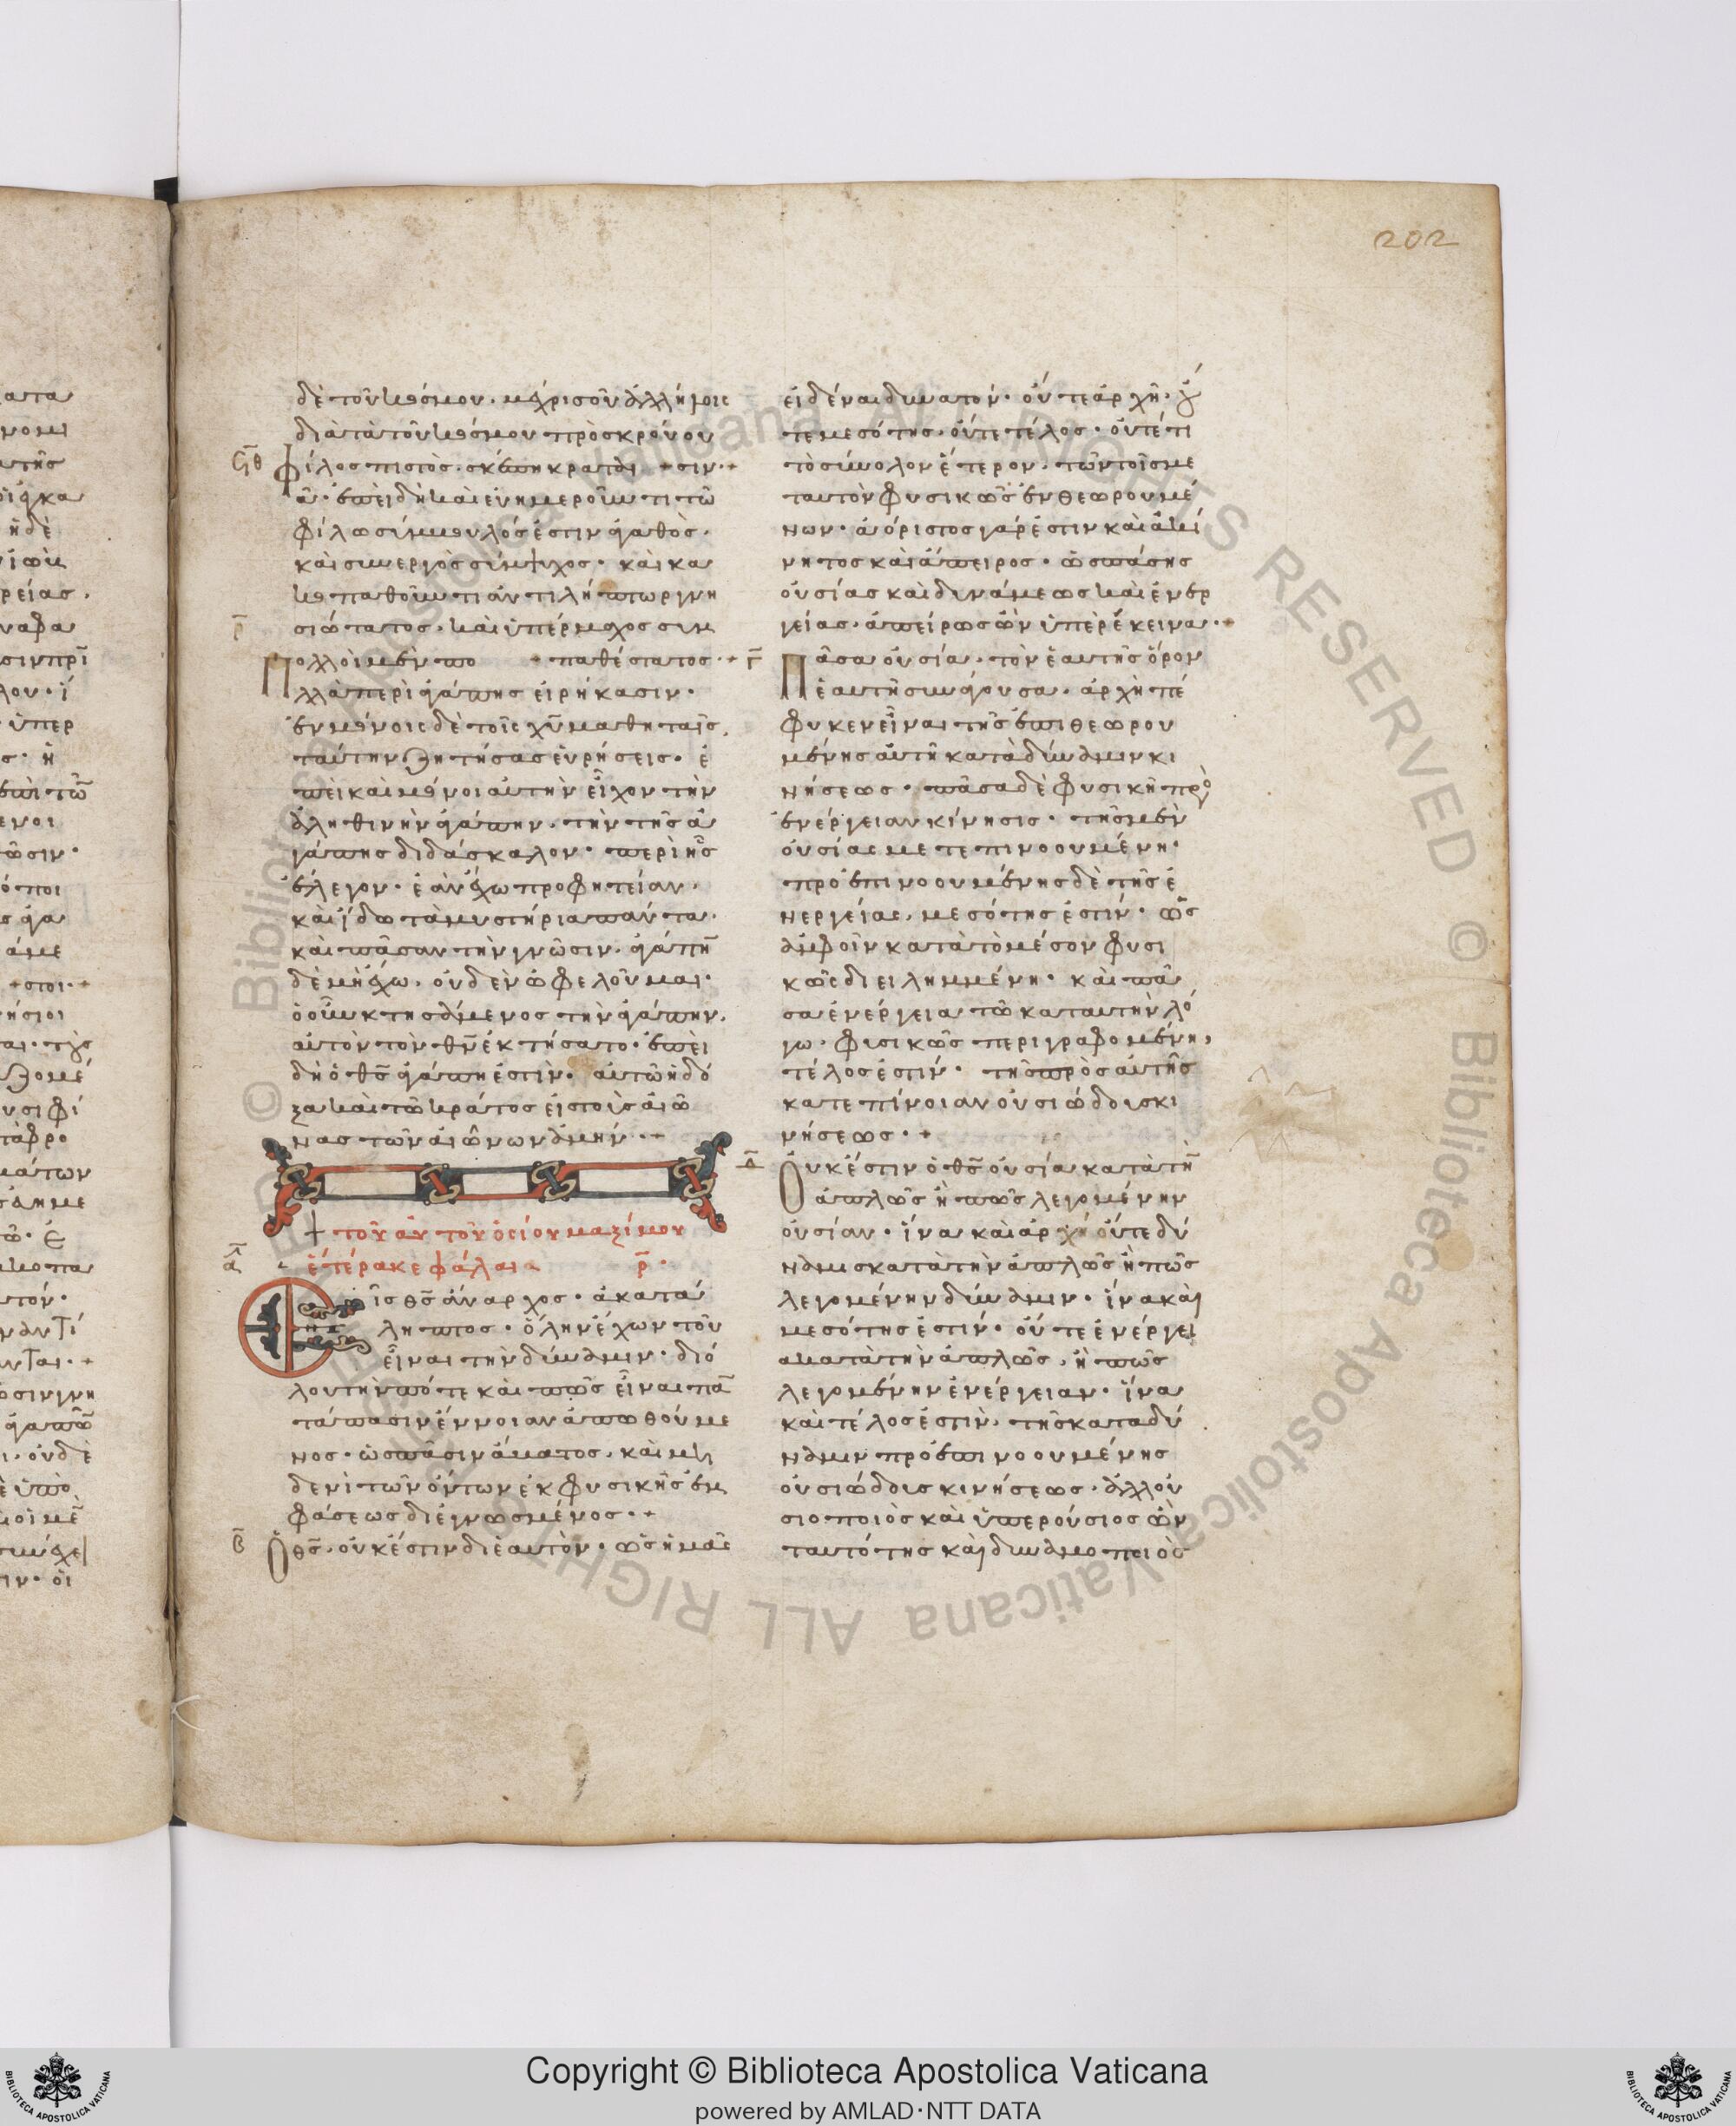 202
δὲ τοῦ κόσμου. μέχρις οὗ ἀλλήλοις
διὰ τὰ τοῦ κόσμου προσκρούου
ϟθ Φίλος πιστὸς. σκέπη κραταιὰ +σιν·+
ἐπειδὴ καὶ εὐημεροῦντι τῶ
φίλω σύμβουλός ἐστιν ἀγαθὸς.
καὶ συνεργὸς σύμψυχος· καὶ κα
κοπαθοῦντι ἀντιλήπτωρ γνη
ρ̄ σιώτατος. καὶ ὑπέρμαχος συμ
Πολλοὶ μὲν πο + παθέστατος·+
λλὰ περὶ ἀγάπης εἰρήκασιν·
ἐν μόνοις δὲ τοῖς χῦ μαθηταῖς,
ταύτην ζητήσας εὑρήσεις· ἐ
πεὶ καὶ μόνοι αὐτὴν εἶχον τὴν
ἀληθινὴν ἀγάπην. τὴν τῆς ἀ
γάπης διδάσκαλον· περὶ ἧς
ἔλεγον· ἐὰν ἔχω προφητείαν.
καὶ ἴδω τὰ μυστήρια πάντα.
καὶ πᾶσαν τὴν γνῶσιν. ἀγάπη̄
δὲ μὴ ἔχω. οὐδὲν ὠφελοῦμαι·
ὁ οὖν κτησάμενος τὴν ἀγάπην.
αὐτὸν τὸν θν̄ ἐκτήσατο· ἐπεὶ
δὴ ὁ θς̄ ἀγάπη ἐστὶν· αὐτῶ ἡ δό
ξα καὶ τὸ κράτος εἰς τοὺς αἰῶ
νας τῶν αἰώνων ἀμήν·+
+ τοῦ αὐτοῦ ὁσίου μαξίμου
ἕτερα κεφάλαια ρ̄·
ᾱ Εἷς θς̄ ἄναρχος· ἀκατά
ληπτος· ὅλην ἔχων τοῦ
εἶναι τὴν δύναμιν· διό
λου τὴν πότε καὶ πῶς εἶναι πα
τάπασιν ἔννοιαν ἀπωθούμε
νος· ὡς πᾶσιν ἄβατος. καὶ μη
δενὶ τῶν ὄντων ἐκ φυσικῆς ἐμ
φάσεως διεγνωσμένος·+
β̄ Ὁ θς̄. οὐκ ἔστιν δι' ἑαυτὸν. ὡς ἡμᾶς
εἰδέναι δυνατον· οὔτε ἀρχὴ. οὔ
τε μεσότης. οὔτε τέλος. οὔτέ τι
τὸ σύνολον ἕτερον. τῶν τοῖς με
τ' αὐτὸν φυσικῶς ἐνθεωρουμέ
νων· ἀόριστος γάρ ἐστιν καὶ ἀκί
νητος καὶ ἄπειρος· ὡς πάσης
οὐσίας καὶ δυνάμεως καὶ ἐνερ
γείας. ἀπείρως ὢν ὑπερέκεινα·+
γ̄ Πᾶσα οὐσία. τὸν ἑαυτῆς ὅρον
ἑαυτῆ συνάγουσα. ἀρχὴ πέ
φυκεν εἶναι τῆς ἐπιθεωρου
μένης αὐτῆ κατὰ δύναμιν κι
νήσεως· πᾶσα δὲ φυσικὴ πρὸς
ἐνέργειαν κίνησις· τῆς μὲν
οὐσίας μετεπινοουμένη·
προεπινοουμένης δὲ τῆς ἐ
νεργείας. μεσότης ἐστίν· ὡς
ἀμφοῖν κατὰ τὸ μέσον φυσι
κῶς διειλημμένη· καὶ πᾶ
σα ἐνέργεια τῶ κατ' αὐτὴν λό
γω. φυσικῶς περιγραφομένη,
τέλος ἐστίν· τῆς πρὸς αὐτῆς
κατ' ἐπίνοιαν οὐσιώδους κι
νήσεως·+
δ̄ Οὐκ ἔστιν ὁ θς̄ οὐσία κατὰ τὴ̄
ἁπλῶς ἢ πῶς λεγομένην
οὐσίαν· ἵνα καὶ ἀρχή οὔτε δύ
ναμις κατὰ τὴν ἁπλῶς ἢ πῶς
λεγομένην δύναμιν· ἵνα καὶ
μεσότης ἐστίν· οὔτε ἐνέργει
α κατὰ τὴν ἁπλῶς. ἢ πῶς
λεγομένην ἐνέργειαν· ἵνα
καὶ τέλος ἐστὶν. τῆς κατὰ δύ
ναμιν προεπινοουμένης
οὐσιώδους κινήσεως. ἀλλ' οὐ
σιοποιὸς καὶ ὑπερούσιος ὢν
ταυτότης καὶ δυναμοποιὸς
Copyright © Biblioteca Apostolica Vaticana
powered by AMLAD·NTT DATA